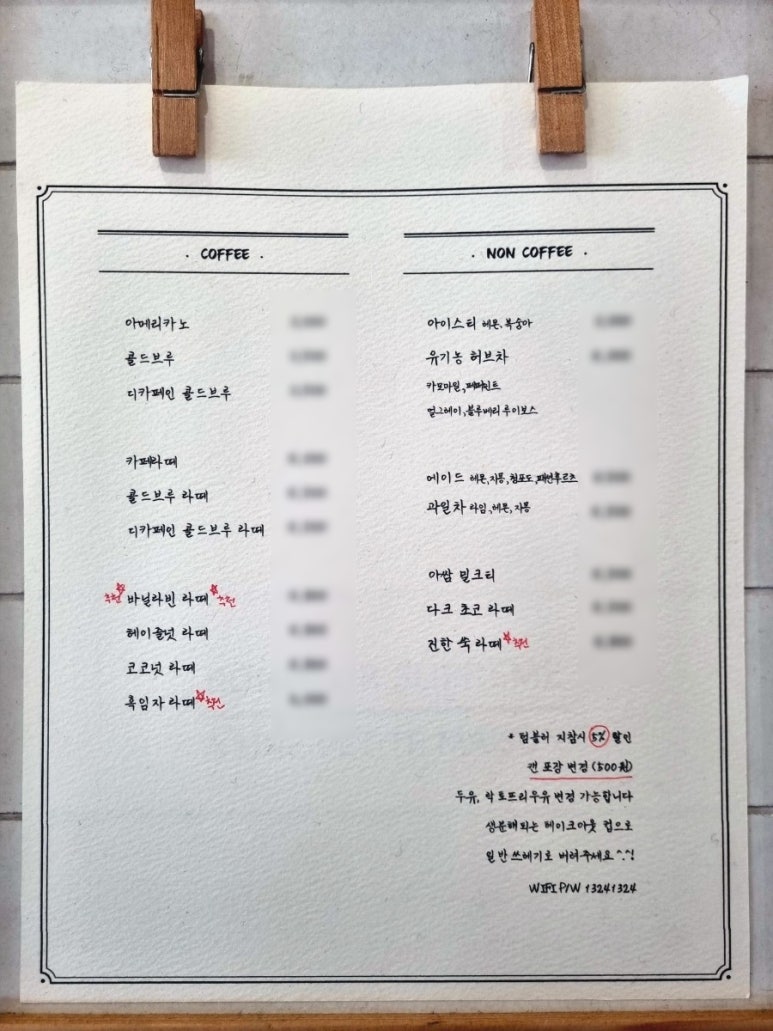 · COFFEE ·
아메리카노
콜드브루
디카페인 콜드브루
카페라떼
콜드브루 라떼
디카페인 콜드브루 라떼
추천 바닐라빈 라떼 추천
헤이즐넛 라떼
코코넛 라떼
흑임자 라떼 추천
· NON COFFEE ·
아이스티 레몬, 복숭아
유기농 허브차
카모마일, 페퍼민트
얼그레이, 블루베리 루이보스
에이드 레몬, 자몽, 청포도, 패션후르츠
과일차 라임, 레몬, 자몽
아쌈 밀크티
다크 초코 라떼
진한 쑥 라떼 추천
* 텀블러 지참시 5% 할인
캔 포장 변경 (500원)
두유, 락토프리우유 변경 가능합니다
생분해되는 테이크아웃 컵으로
일반쓰레기로 버려주세요 ^.^!
WIFI P/W 13241324